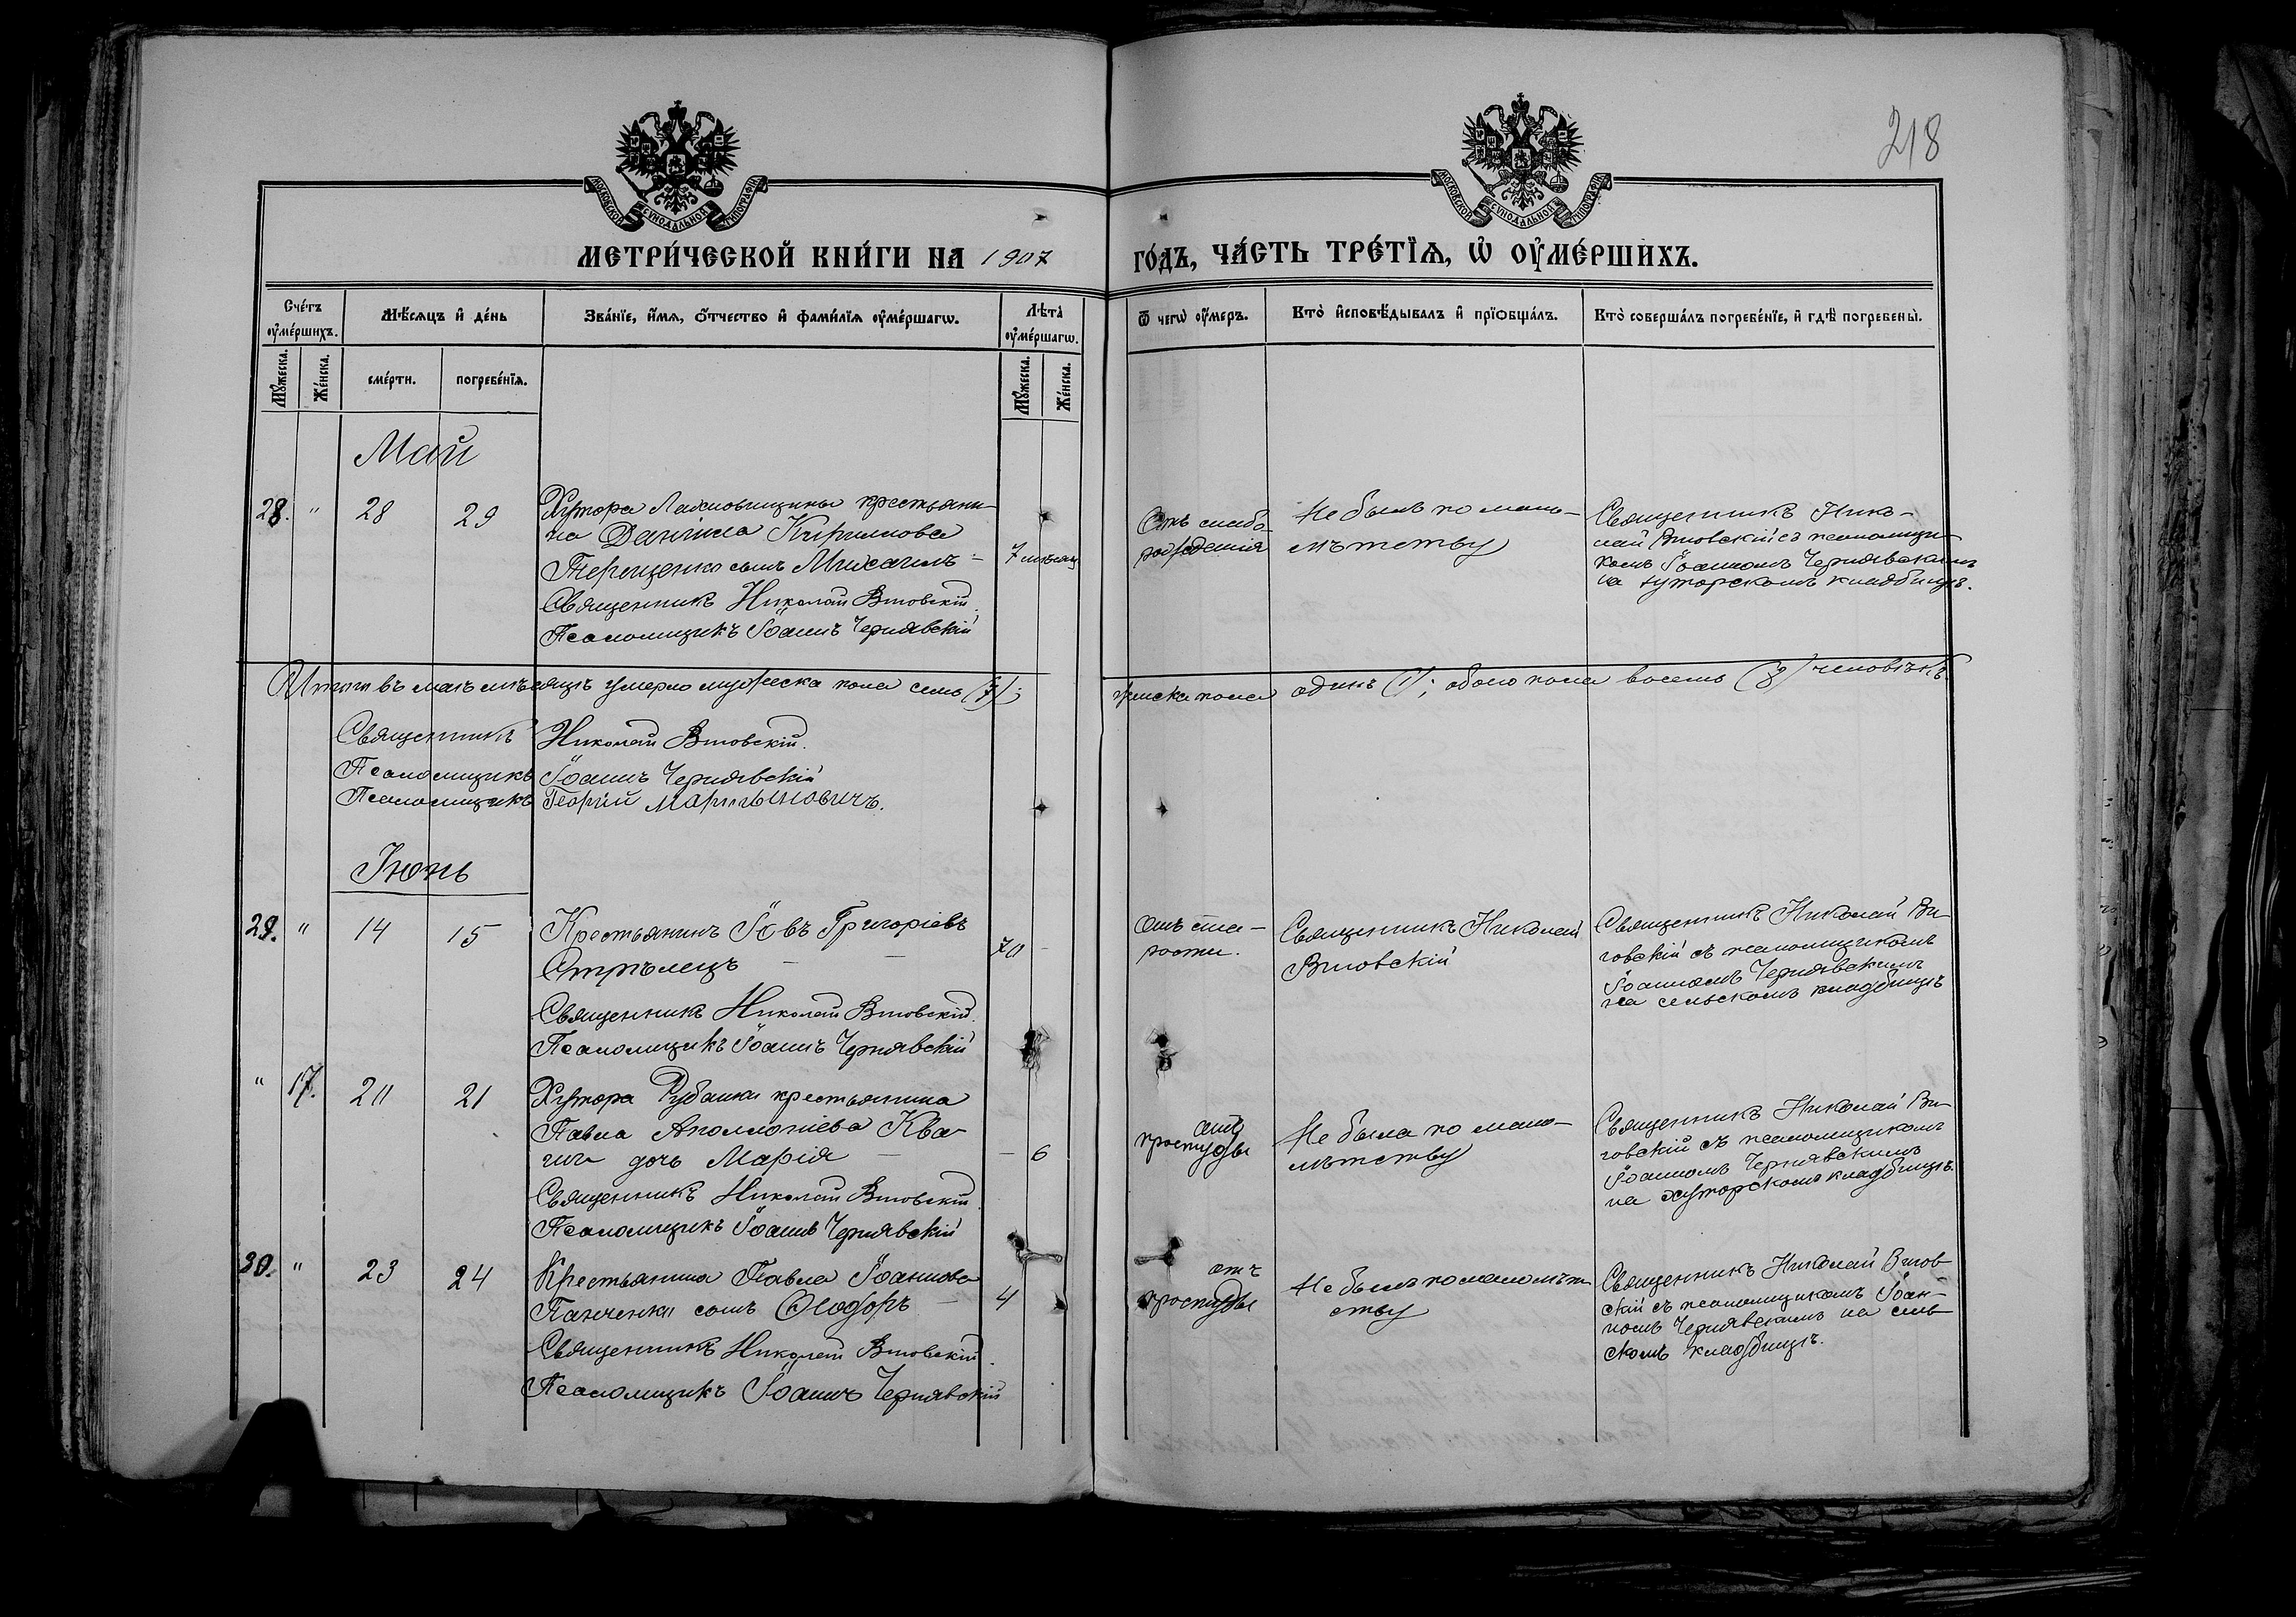 218
МОСКОВСКОЙ СѴНОДАЛЬНОЙ ТИПОГРАФІИ
МОСКОВСКОЙ СѴНОДАЛЬНОЙ ТИПОГРАФІИ
МЕТРИ́ЧЕСКОЙ КНИ́ГИ НА 1907 ГО́ДЪ, ЧА́СТЬ ТРЕ́ТЇѦ, Ѡ҆ ОУ҆МЕ́РШИХЪ.
Сче́тъ оу҆ме́ршихъ.
Мѣ́сяцъ и҆ де́нь
Зва́нїе, и҆́мя, ѻ҆́тчество и҆ фами́лїя оу҆ме́ршагѡ.
Лѣ̑та оу҆ме́ршагѡ.
Ѿ чегѡ̀ оу҆́меръ.
Кто̀ и҆сповѣ́дывалъ и҆ прїѡбща́лъ.
Кто̀ соверша́лъ погребе́нїе, и҆ гдѣ̀ погребены̀.
Мꙋ́жеска.
Же́нска.
сме́рти.
погребе́нїя.
Мꙋ́жеска.
Же́нска.
Май
28. " 28 29
Хутора крестьяни-
на Даніила Кириллова
Терещенко сынъ Мисаилъ -
Священникъ Николай
Псаломщикъ Іоаннъ Чернявскій
7 мѣсяц
Отъ слабо-
рожденія
Не былъ по мало-
лѣтству
Священникъ Нико-
лай съ псаломщи-
комъ Іоанномъ Чернявскимъ
на хуторскомъ кладбищѣ.
Итого въ маѣ мѣсяцѣ умерло мужеска пола семь (7);
женска пола одинъ (1); обоего пола восемь (8) человѣкъ
Священникъ Николай
Псаломщикъ Іоаннъ Чернявскій
Псаломщикъ Георгій Мартыновичъ.
Іюнь
29. " 14 15
Крестьянинъ Іовъ Григоріевъ
Стрѣлецъ - -
Священникъ Николай
Псаломщикъ Іоаннъ Чернявскій
70 -
Отъ ста-
рости.
Священникъ Николай
Священникъ Николай
съ псаломщикомъ
Іоанномъ Чернявскимъ
на сельскомъ кладбищѣ
" 17. 20 21
Хутора крестьянина
Павла Аполлоніева
дочь Марія -
Священникъ Николай
Псаломщикъ Іоаннъ Чернявскій
- 6
отъ
простуды
Не была по мало-
лѣтству
Священникъ Николай
съ псаломщикомъ
Іоанномъ Чернявскимъ
на хуторскомъ кладбищѣ.
30. " 23 24
Крестьянина Павла Іоаннова
Панченки сынъ Ѳеодоръ -
Священникъ Николай
Псаломщикъ Іоаннъ Чернявскій
4
отъ
простуды
Не былъ по малолѣт-
ству
Священникъ Николай
съ псаломщикомъ Іоан-
номъ Чернявскимъ на сель-
скомъ кладбищѣ.